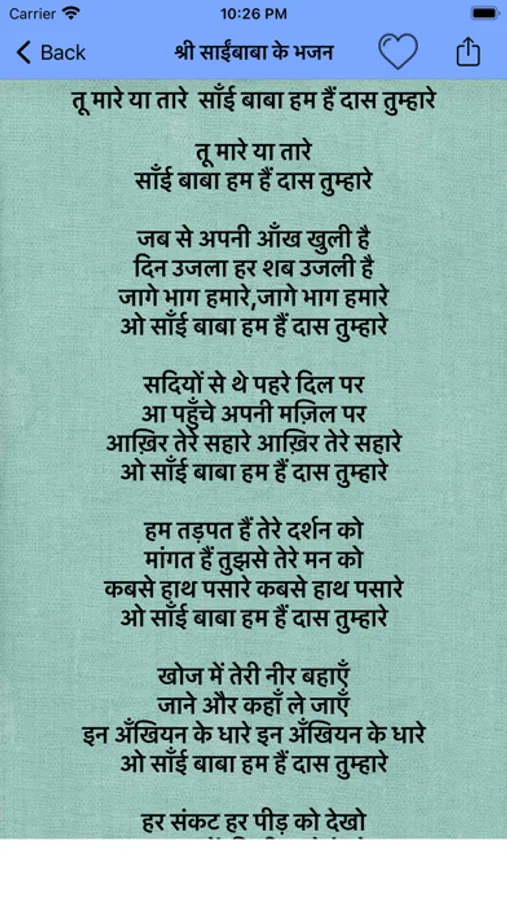 Carrier 10:26 PM
Back श्री साईंबाबा के भजन
तू मारे या तारे साँई बाबा हम हैं दास तुम्हारे
तू मारे या तारे
साँई बाबा हम हैं दास तुम्हारे
जब से अपनी आँख खुली है
दिन उजला हर शब उजली है
जागे भाग हमारे,जागे भाग हमारे
ओ साँई बाबा हम हैं दास तुम्हारे
सदियों से थे पहरे दिल पर
आ पहुँचे अपनी मज़िल पर
आख़िर तेरे सहारे आख़िर तेरे सहारे
ओ साँई बाबा हम हैं दास तुम्हारे
हम तड़पत हैं तेरे दर्शन को
मांगत हैं तुझसे तेरे मन को
कबसे हाथ पसारे कबसे हाथ पसारे
ओ साँई बाबा हम हैं दास तुम्हारे
खोज में तेरी नीर बहाएँ
जाने और कहाँ ले जाएँ
इन अँखियन के धारे इन अँखियन के धारे
ओ साँई बाबा हम हैं दास तुम्हारे
हर संकट हर पीड़ को देखो